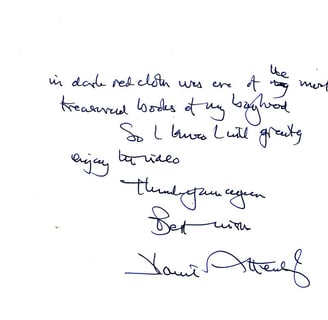 in dark red cloth was one of the most
treasured books of my boyhood
So I know I will greatly
enjoy the video
Thank you again
Best wishes
David Attenb